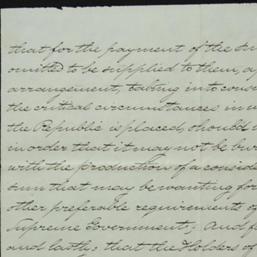 that for the payment of the
omitted to be supplied to them, a
arrangement, taking into cons
the critical circumstances in w
the Republic is placed, should
in order that it may not be bur
with the production of a conside
sum that may be wanting for
other preferable requirements of
Supreme Government; And f
and lastly; that the Holders of